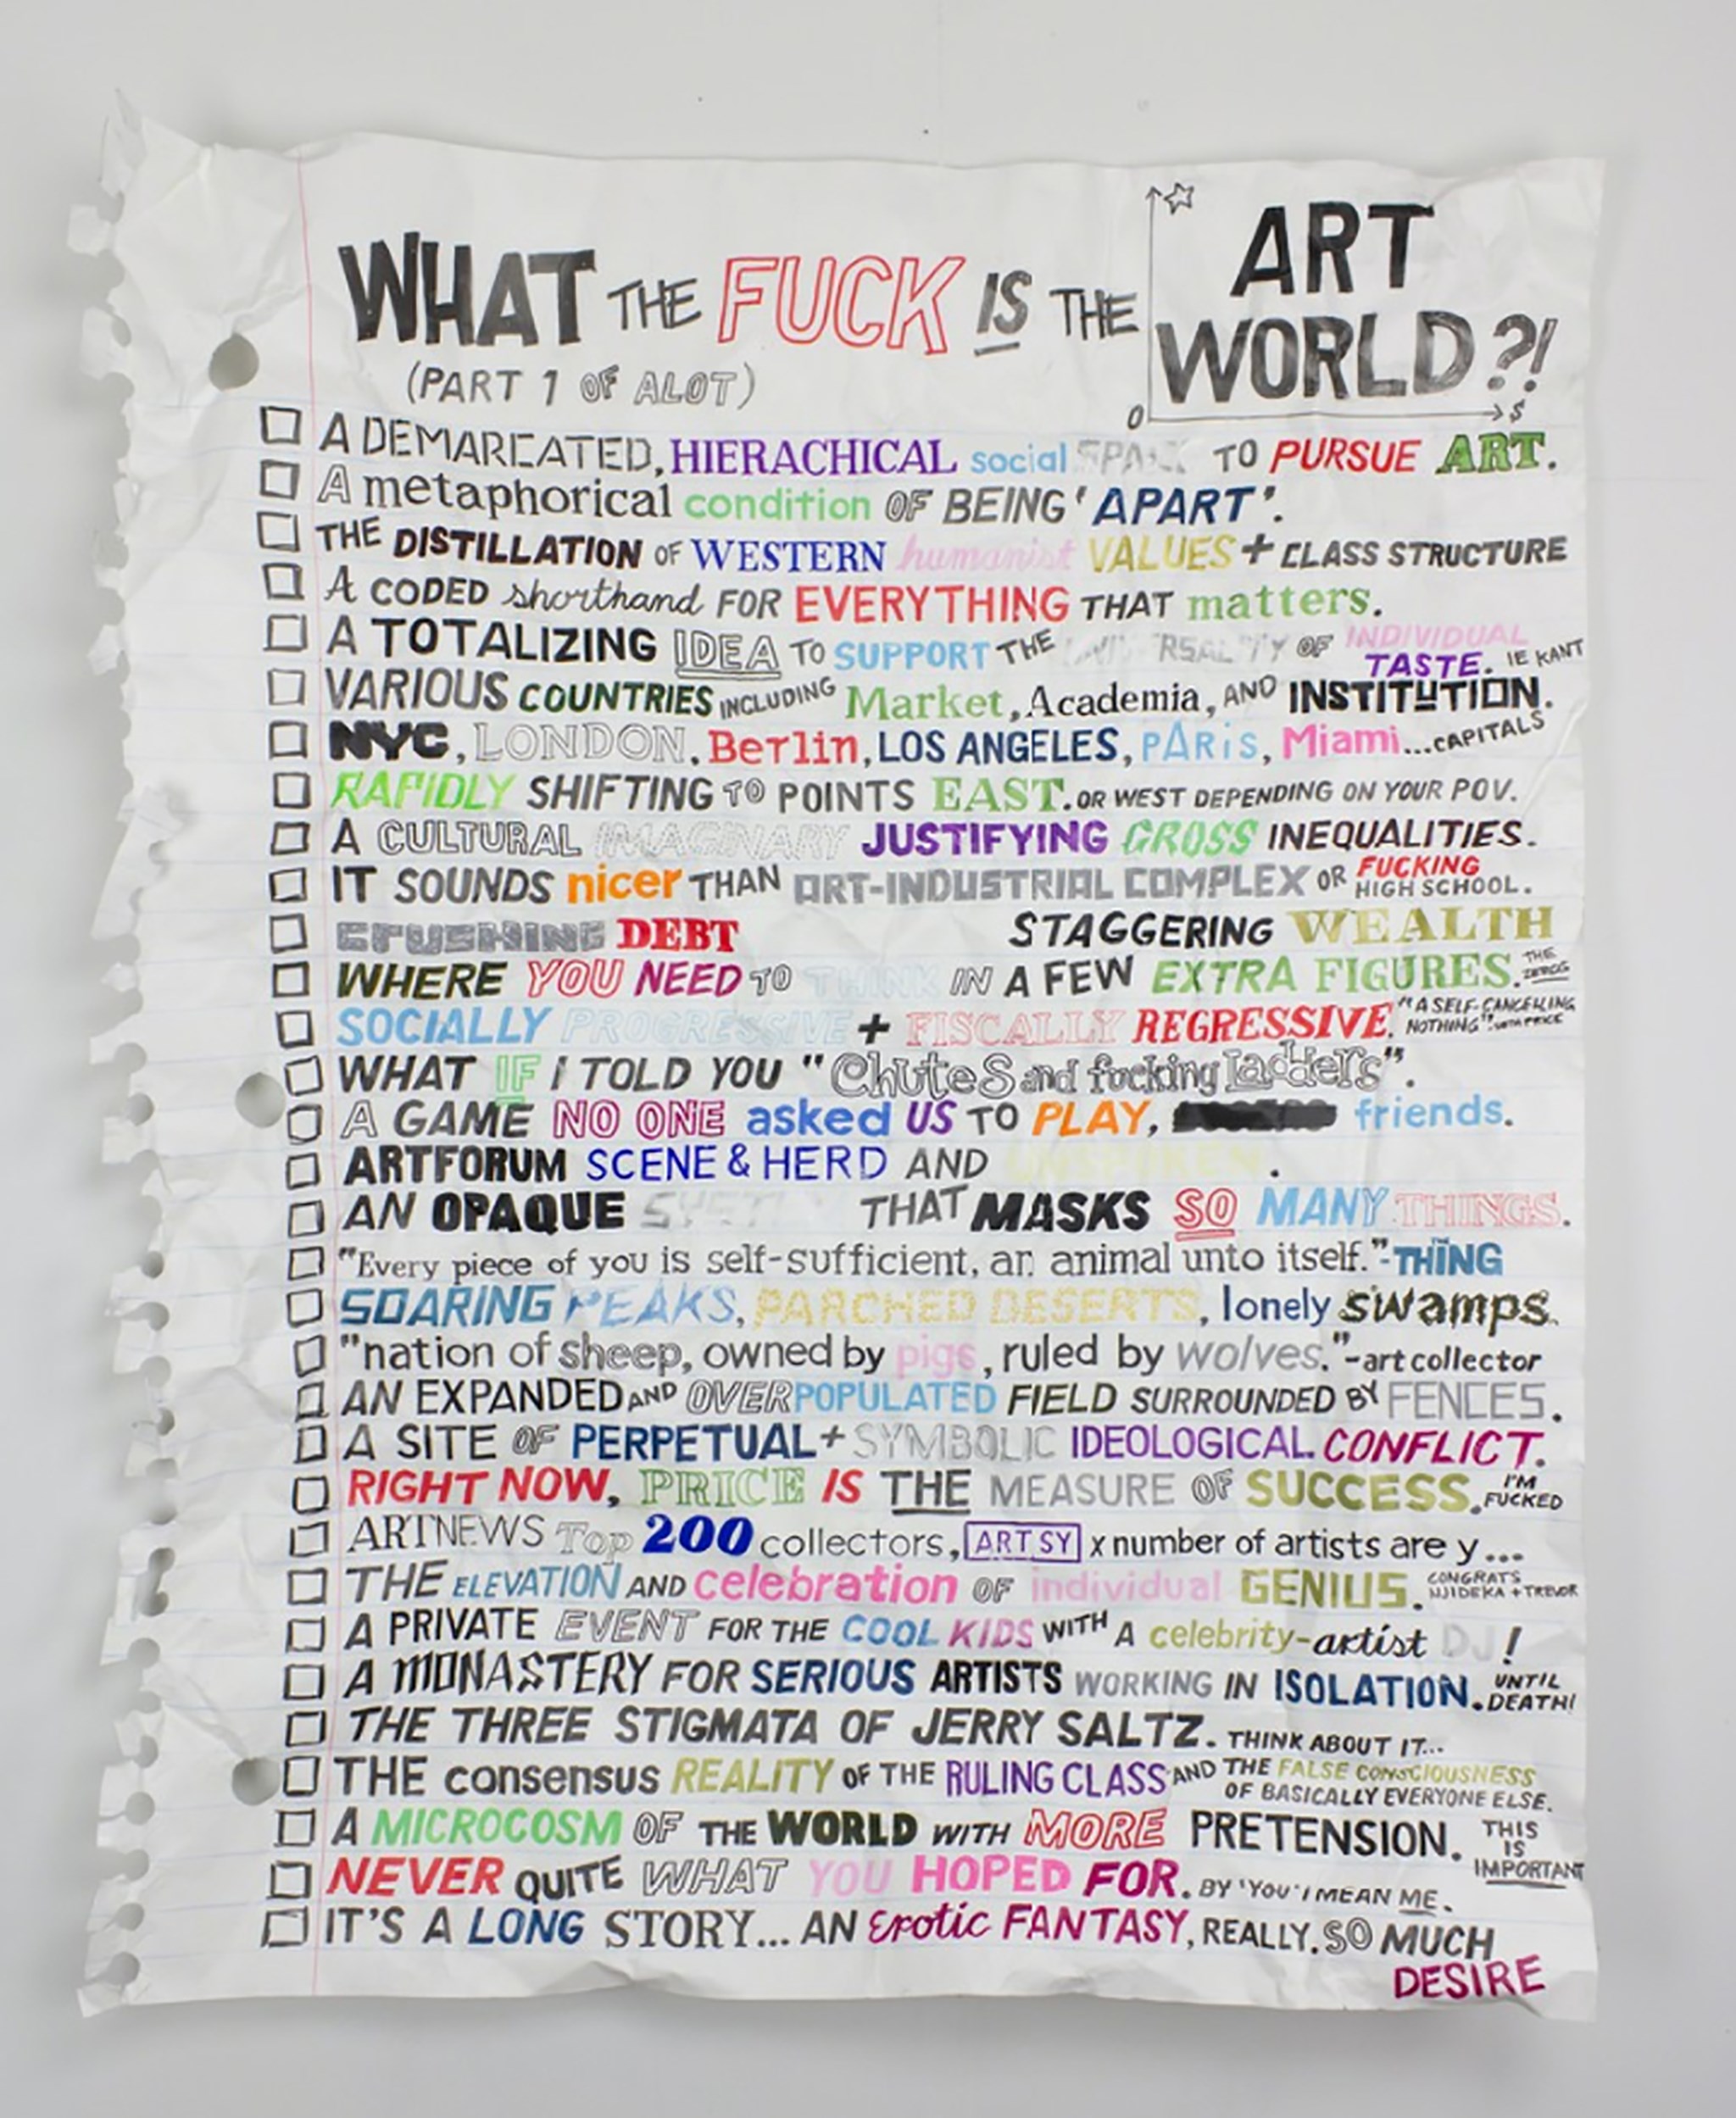 WHAT THE FUCK IS THE ART WORLD?!
(PART 1 OF ALOT)
0 $
A DEMARCATED, HIERACHICAL social TO PURSUE ART.
A metaphorical condition OF BEING 'APART'.
THE DISTILLATION OF WESTERN humanist VALUES + CLASS STRUCTURE
A CODED shorthand FOR EVERYTHING THAT matters.
A TOTALIZING IDEA TO SUPPORT THE OF INDIVIDUAL TASTE. IE KANT
VARIOUS COUNTRIES INCLUDING Market, Academia, AND INSTITUTION.
NYC, LONDON, Berlin, LOS ANGELES, PARiS, Miami...CAPITALS
RAPIDLY SHIFTING TO POINTS EAST. OR WEST DEPENDING ON YOUR POV.
A CULTURAL IMAGINARY JUSTIFYING GROSS INEQUALITIES.
IT SOUNDS nicer THAN ART-INDUSTRIAL COMPLEX OR FUCKING HIGH SCHOOL.
CRUSHING DEBT STAGGERING WEALTH
WHERE YOU NEED TO THINK IN A FEW EXTRA FIGURES. THE ZEROS
SOCIALLY PROGRESSIVE + FISCALLY REGRESSIVE. "A SELF-CANCELLING NOTHING".
WHAT IF i TOLD YOU "Chutes and fucking Ladders".
A GAME NO ONE asked US TO PLAY, friends.
ARTFORUM SCENE & HERD AND UNSPOKEN.
AN OPAQUE THAT MASKS SO MANY THINGS.
"Every piece of you is self-sufficient, an animal unto itself."-THING
SOARING PEAKS, PARCHED DESERTS, lonely swamps.
"nation of sheep, owned by pigs, ruled by wolves."-art collector
AN EXPANDED AND OVERPOPULATED FIELD SURROUNDED BY FENCES.
A SITE OF PERPETUAL + SYMBOLIC IDEOLOGICAL CONFLICT.
RIGHT NOW, PRICE IS THE MEASURE OF SUCCESS. I'M FUCKED
ARTNEWS Top 200 collectors, ARTSY x number of artists are y...
THE ELEVATION AND celebration OF individual GENIUS. CONGRATS NJIDEKA + TREVOR
A PRIVATE EVENT FOR THE COOL KIDS WITH A celebrity-artist DJ!
A MONASTERY FOR SERIOUS ARTISTS WORKING IN ISOLATION. UNTIL DEATH!
THE THREE STIGMATA OF JERRY SALTZ. THINK ABOUT IT...
THE consensus REALITY OF THE RULING CLASS AND THE FALSE CONSCIOUSNESS OF BASICALLY EVERYONE ELSE.
A MICROCOSM OF THE WORLD WITH MORE PRETENSION. THIS IS IMPORTANT
NEVER QUITE WHAT YOU HOPED FOR. BY 'YOU' I MEAN ME.
IT'S A LONG STORY... AN Erotic FANTASY, REALLY. SO MUCH DESIRE